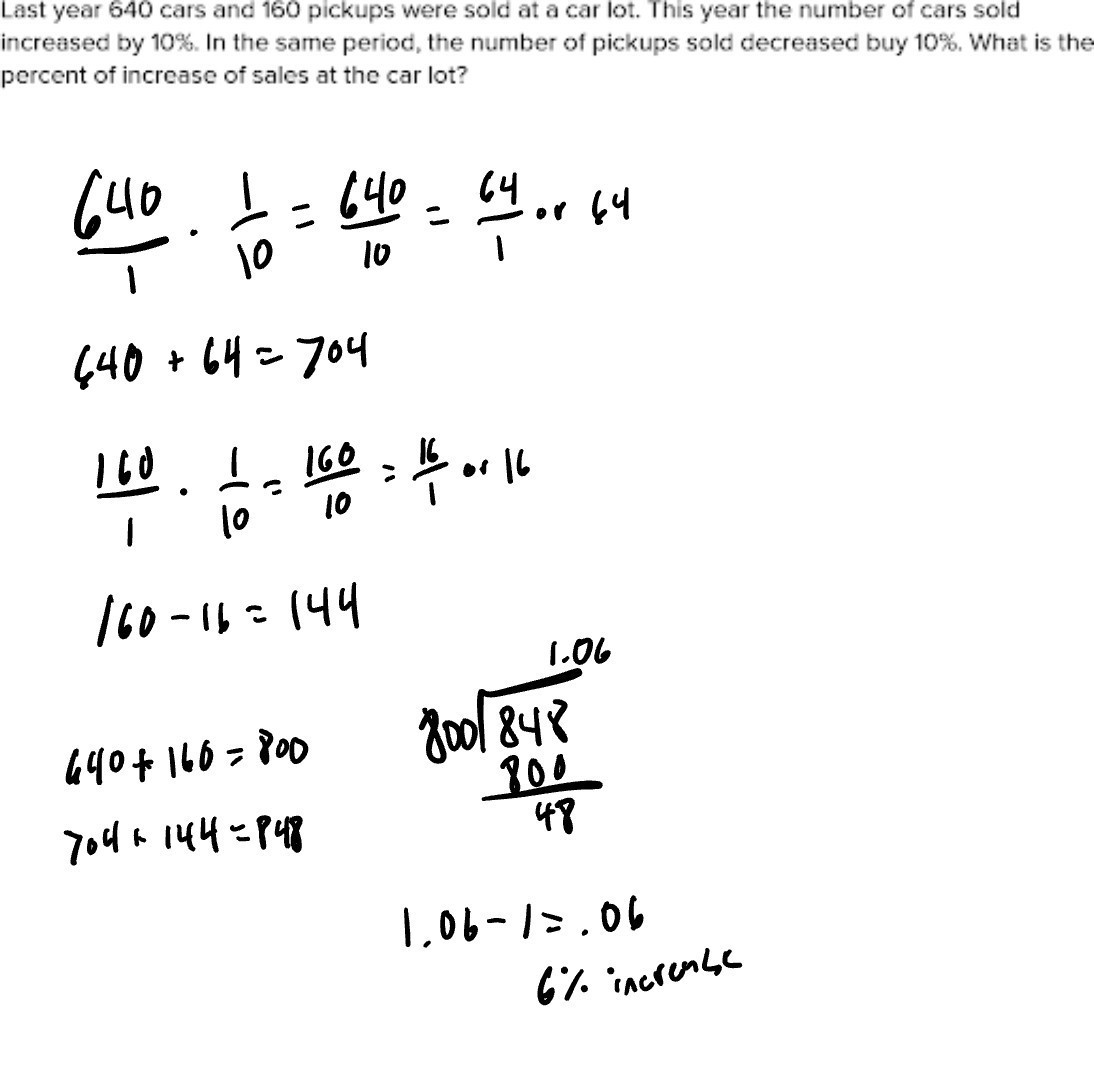 Last year 640 cars and 160 pickups were sold at a car lot. This year the number of cars sold
increased by 10%. In the same period, the number of pickups sold decreased buy 10%. What is the
percent of increase of sales at the car lot?
640/1 · 1/10 = 640/10 = 64/1 or 64
640 + 64 = 704
160/1 · 1/10 = 160/10 = 16/1 or 16
160 - 16 = 144
1.06
800 848
800
48
640 + 160 = 800
704 + 144 = 848
1.06 - 1 = .06
6% increase